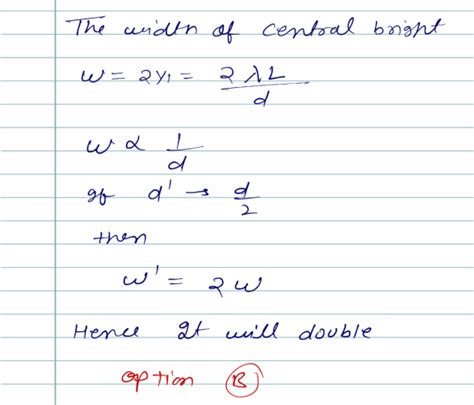 The width of central bright
w = 2y₁ = 2λL/d
w ∝ 1/d
If d' → d/2
then
w' = 2w
Hence It will double
option (B)